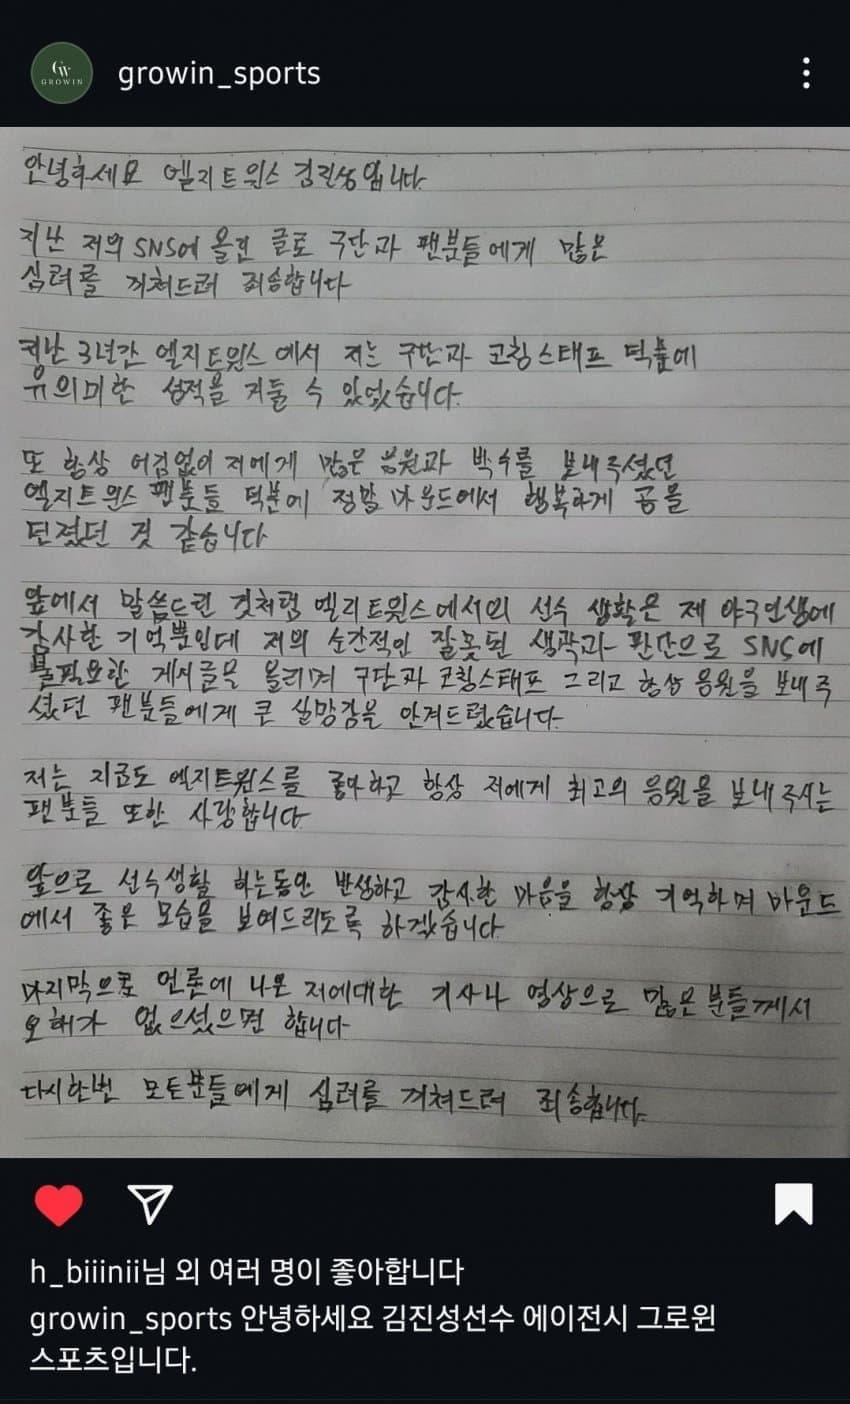 GW
GROWIN
growin_sports
안녕하세요 엘지트윈스 김진성입니다
지난 저의 SNS에 올린 글로 구단과 팬분들에게 많은
심려를 끼쳐드려 죄송합니다
지난 3년간 엘지트윈스에서 저는 구단과 코칭스태프 덕분에
유의미한 성적을 거둘 수 있었습니다.
또 항상 어김없이 저에게 많은 응원과 박수를 보내주셨던
엘지트윈스 팬분들 덕분에 정말 마운드에서 행복하게 공을
던졌던 것 같습니다
앞에서 말씀드린 것처럼 엘지트윈스에서의 선수 생활은 제 야구인생에
감사한 기억뿐인데 저의 순간적인 잘못된 생각과 판단으로 SNS에
불필요한 게시글을 올리며 구단과 코칭스태프 그리고 항상 응원을 보내주
셨던 팬분들에게 큰 실망감을 안겨드렸습니다.
저는 지금도 엘지트윈스를 좋아하고 항상 저에게 최고의 응원을 보내주시는
팬분들 또한 사랑합니다
앞으로 선수생활 하는동안 반성하고 감사한 마음을 항상 기억하며 마운드
에서 좋은 모습을 보여드리도록 하겠습니다
마지막으로 언론에 나온 저에대한 기사나 영상으로 많은분들께서
오해가 없으셨으면 합니다
다시한번 모든분들에게 심려를 끼쳐드려 죄송합니다.
h_biiinii님 외 여러 명이 좋아합니다
growin_sports 안녕하세요 김진성선수 에이전시 그로윈
스포츠입니다.